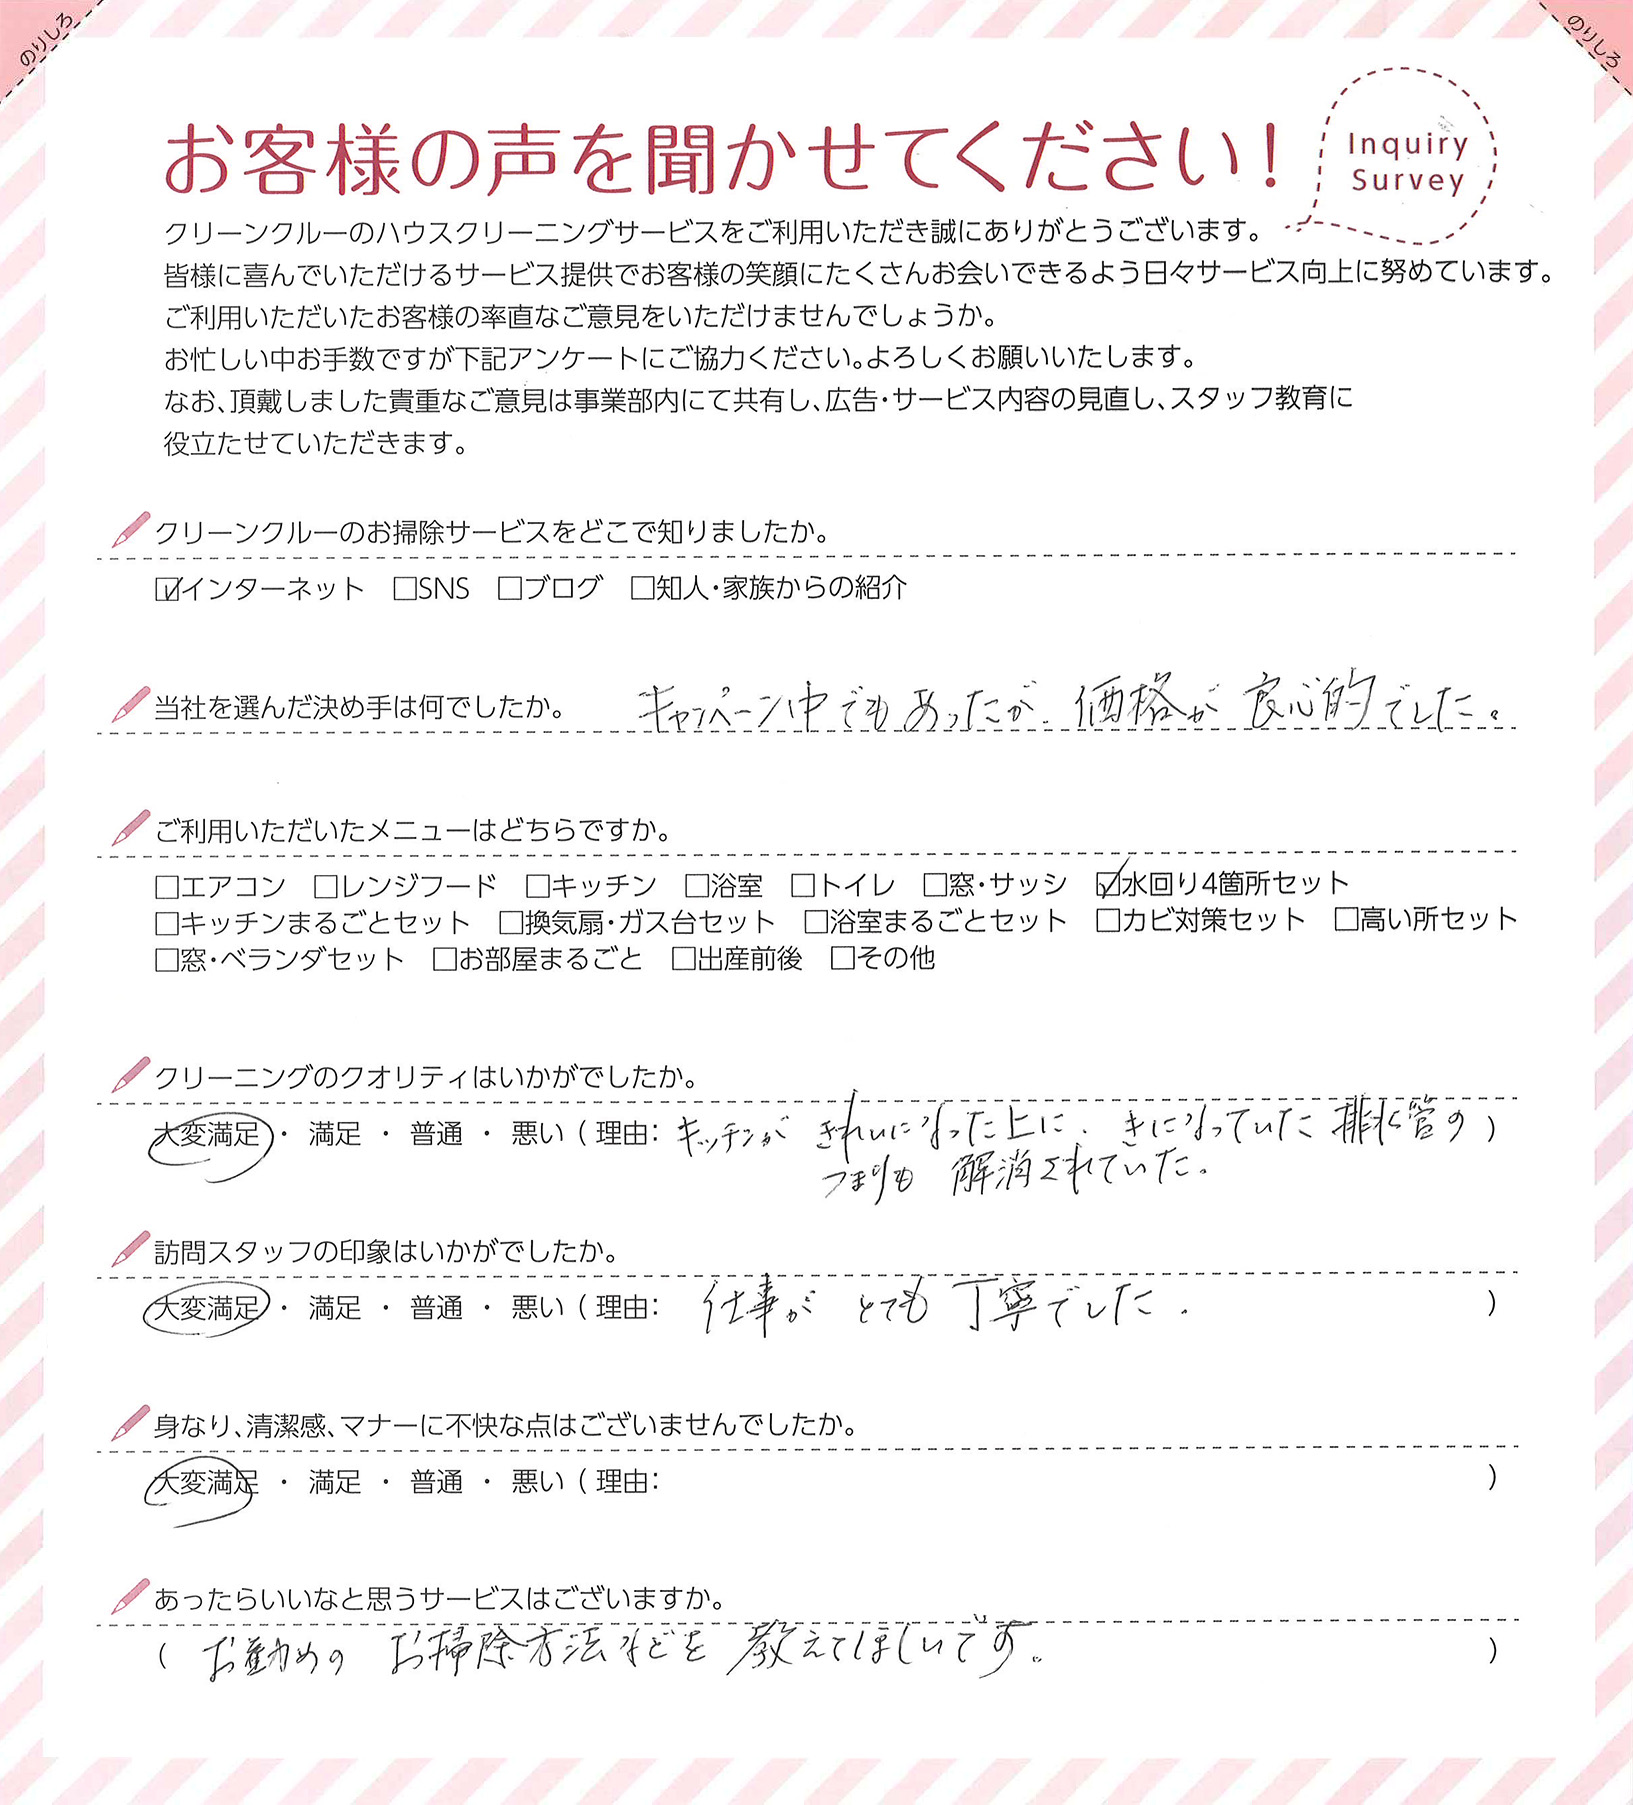 のりしろ
のりしろ
お客様の声を聞かせてください!
Inquiry
Survey
クリーンクルーのハウスクリーニングサービスをご利用いただき誠にありがとうございます。
皆様に喜んでいただけるサービス提供でお客様の笑顔にたくさんお会いできるよう日々サービス向上に努めています。
ご利用いただいたお客様の率直なご意見をいただけませんでしょうか。
お忙しい中お手数ですが下記アンケートにご協力ください。よろしくお願いいたします。
なお、頂戴しました貴重なご意見は事業部内にて共有し、広告・サービス内容の見直し、スタッフ教育に
役立たせていただきます。
クリーンクルーのお掃除サービスをどこで知りましたか。
☑インターネット □SNS □ブログ □知人・家族からの紹介
当社を選んだ決め手は何でしたか。 キャンペーン中でもあったが、価格が良心的でした。
ご利用いただいたメニューはどちらですか。
□エアコン □レンジフード □キッチン □浴室 □トイレ □窓・サッシ ☑水回り4箇所セット
□キッチンまるごとセット □換気扇・ガス台セット □浴室まるごとセット □カビ対策セット □高い所セット
□窓・ベランダセット □お部屋まるごと □出産前後 □その他
クリーニングのクオリティはいかがでしたか。
大変満足 ・ 満足 ・ 普通 ・ 悪い ( 理由: キッチンが きれいになった上に、きになっていた排水管の )
つまりも 解消されていた。
訪問スタッフの印象はいかがでしたか。
大変満足 ・ 満足 ・ 普通 ・ 悪い ( 理由: 仕事が とても 丁寧でした。 )
身なり、清潔感、マナーに不快な点はございませんでしたか。
大変満足 ・ 満足 ・ 普通 ・ 悪い ( 理由: )
あったらいいなと思うサービスはございますか。
( お勧めの お掃除方法などを 教えてほしいです。 )